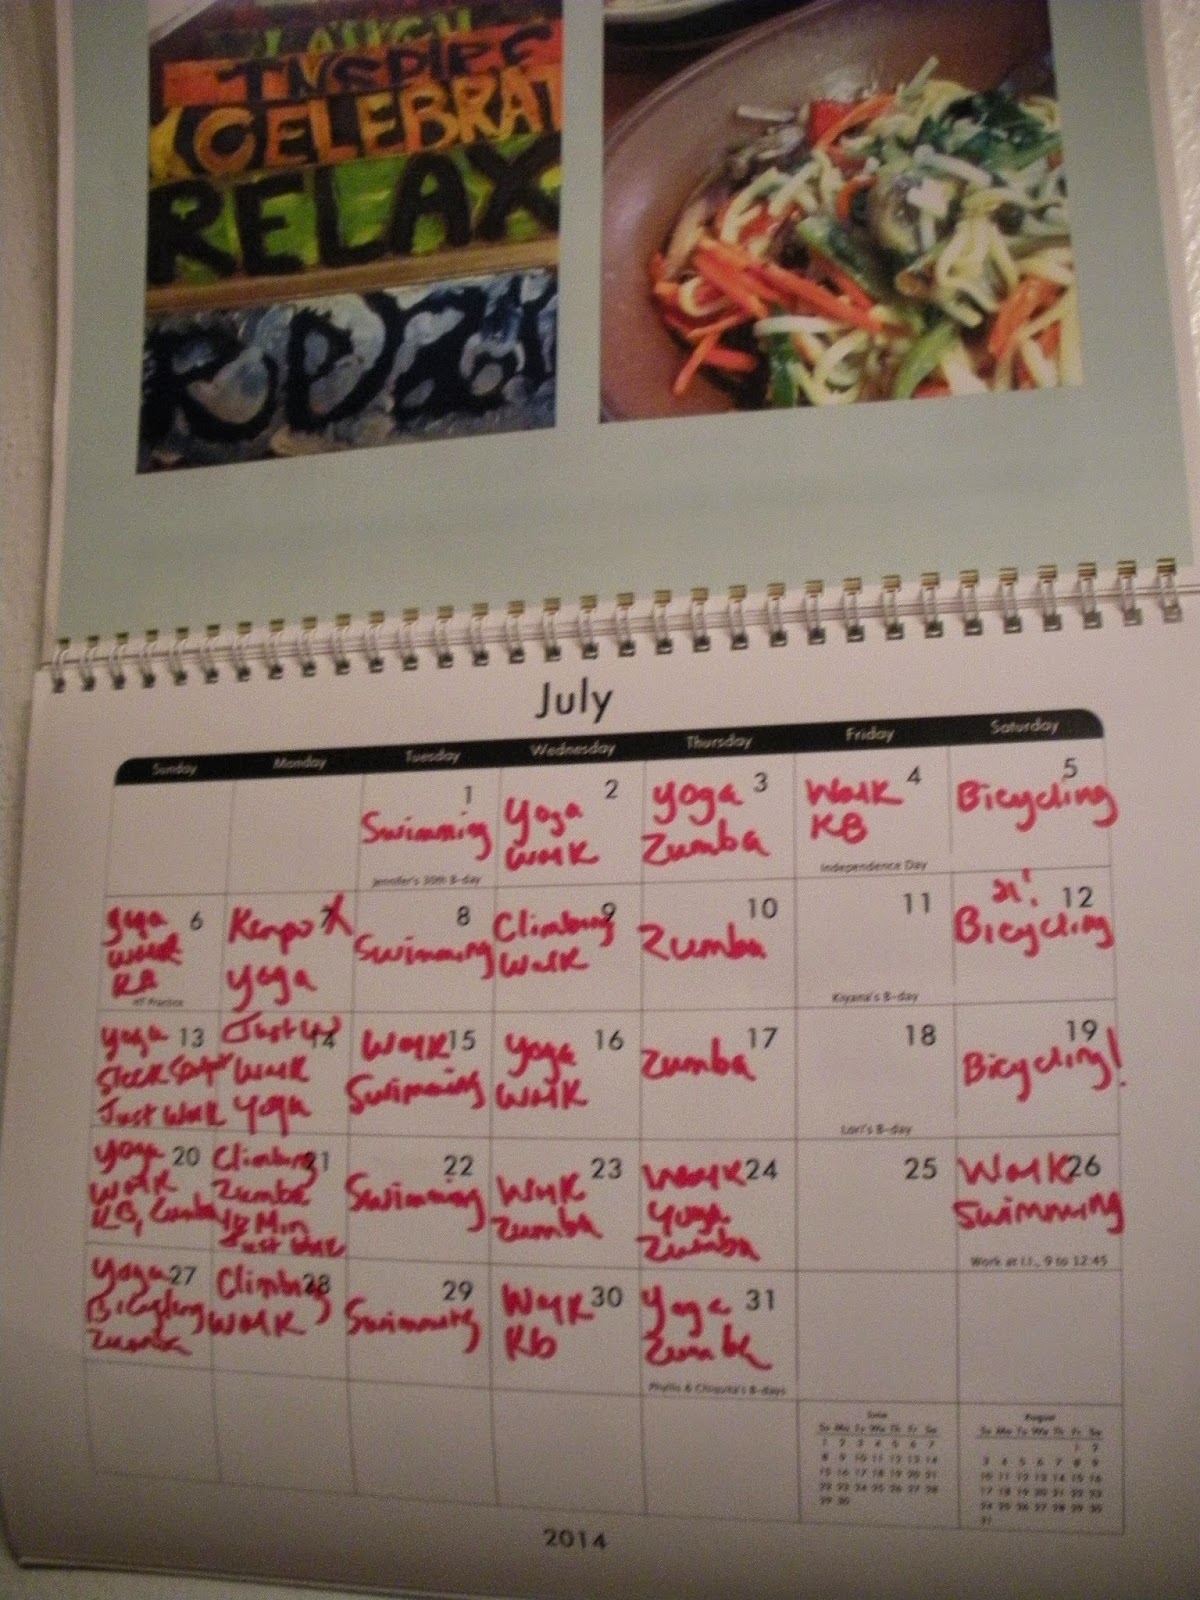 LAUGH
INSPIRE
CELEBRAT
RELAX
July
Sunday Monday Tuesday Wednesday Thursday Friday Saturday
1 2 3 4 5
Swimming
Yoga
Walk
Yoga
Zumba
Walk
KB
Bicycling
Jennifer's 30th B-day
Independence Day
6 7 8 9 10 11 12
Yoga
Walk
KB
Kenpo X
Yoga
Swimming
Climbing
Walk
Zumba
21!
Bicycling
Kiyana's B-day
13 14 15 16 17 18 19
Yoga
Just Walk
Just W
Walk
Yoga
Walk
Swimming
Yoga
Walk
Zumba
Bicycling!
Lori's B-day
20 21 22 23 24 25 26
Yoga
Walk
KB, Zumba
Climbing
Zumba
Min
Just Walk
Swimming
Walk
Zumba
Walk
Yoga
Zumba
Walk
Swimming
Work at I.I., 9 to 12:45
27 28 29 30 31
Yoga
Bicycling
Zumba
Climbing
Walk
Swimming
Walk
Kb
Yoga
Zumba
Phyllis & Chiquita's B-days
June
Su Mo Tu We Th Fr Sa
1 2 3 4 5 6 7
8 9 10 11 12 13 14
15 16 17 18 19 20 21
22 23 24 25 26 27 28
29 30
August
Su Mo Tu We Th Fr Sa
1 2
3 4 5 6 7 8 9
10 11 12 13 14 15 16
17 18 19 20 21 22 23
24 25 26 27 28 29 30
31
2014